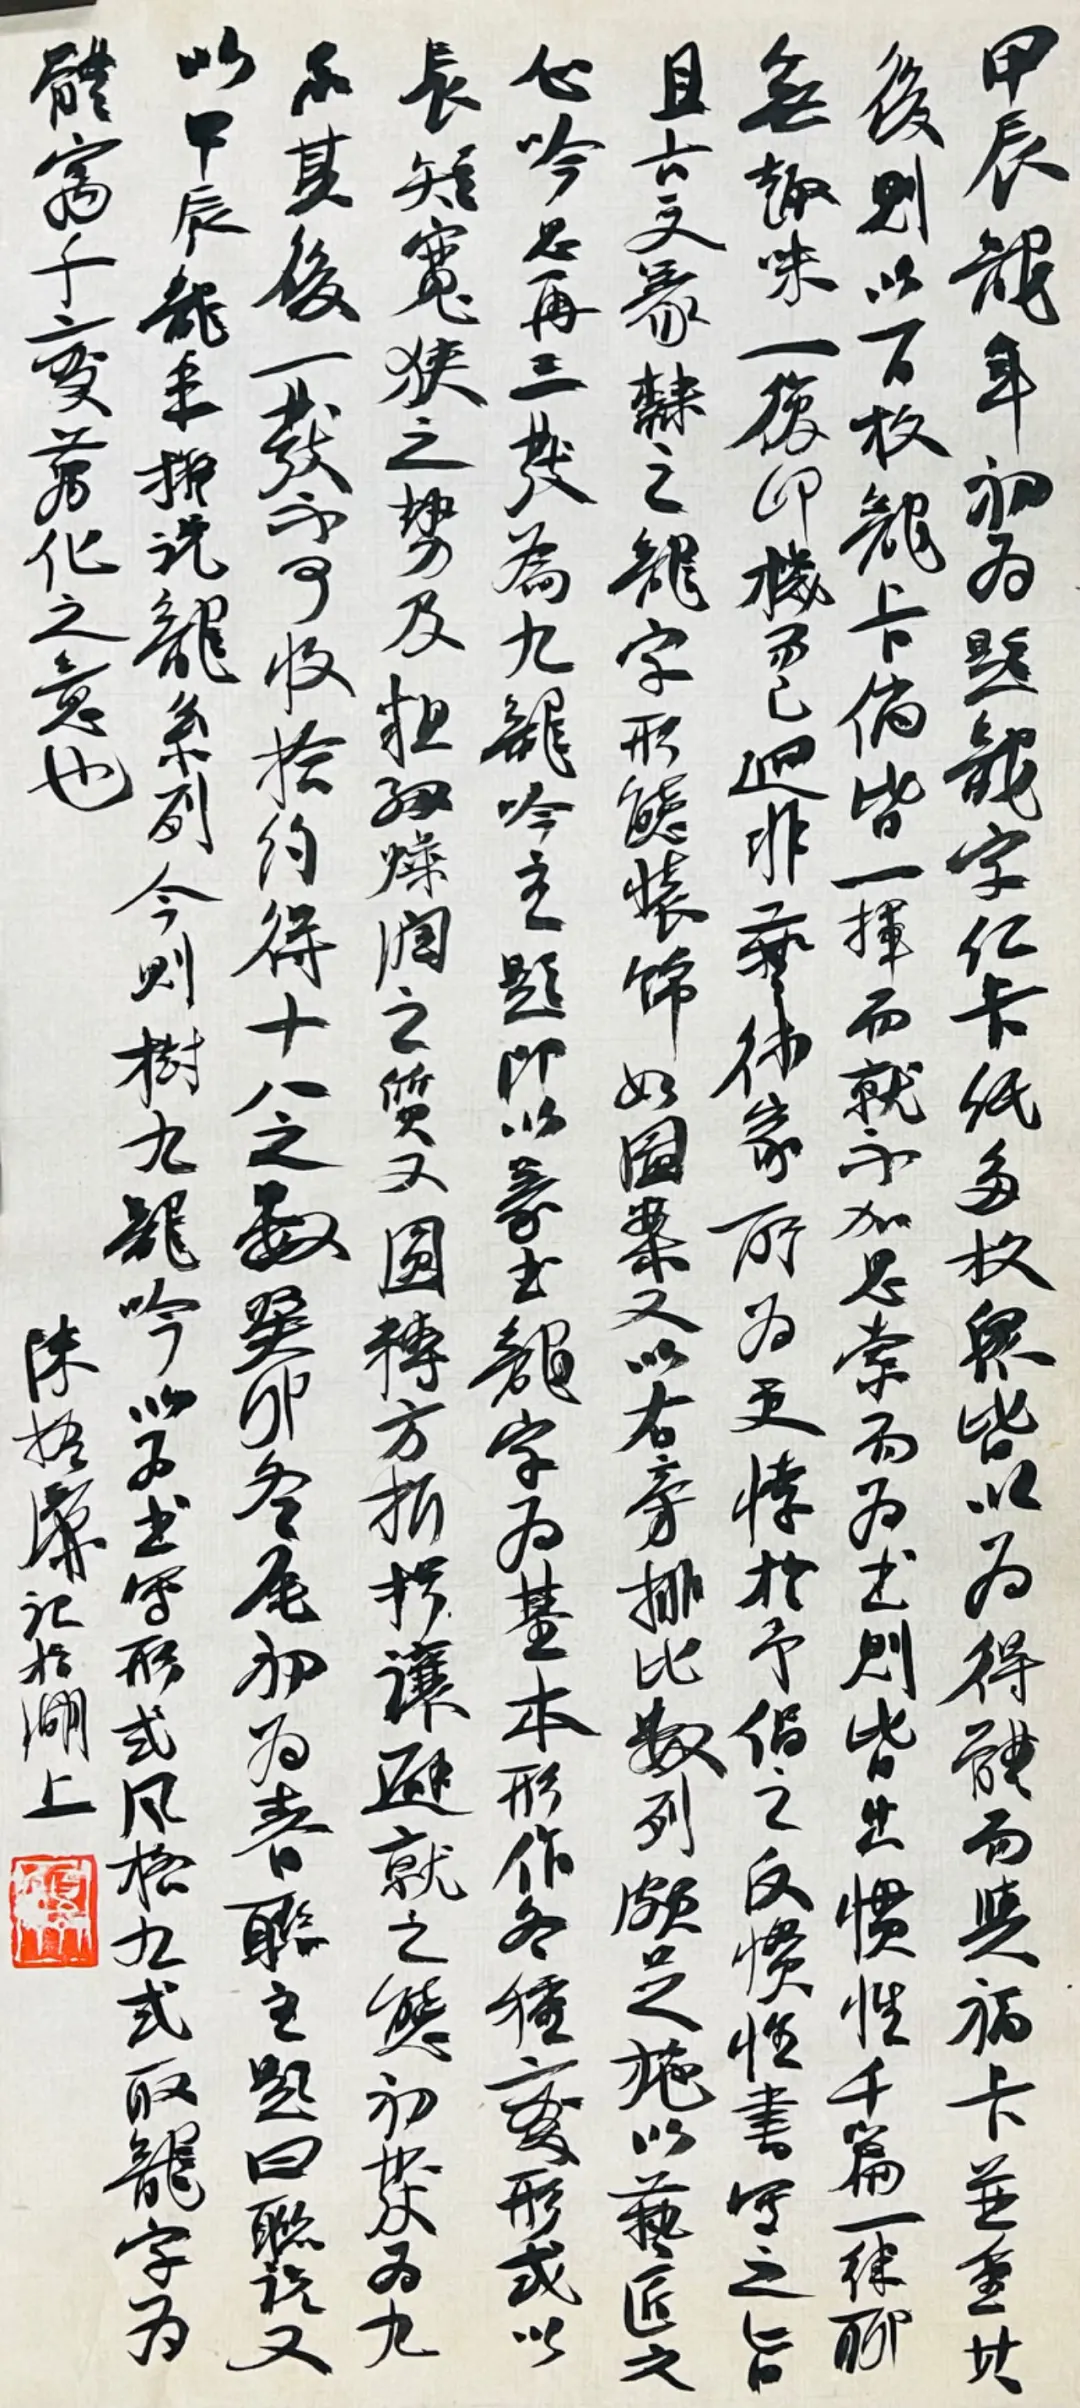 甲辰龍年初為題龍字仁卡紙多枚與皆以為得體而與福卡並重其
後則以百枚龍卡倘皆一揮而就不加思索而為也則皆出慣性千篇一律聊
無趣味一復印機而已迥非藝術家所為更悖於予倡之反慣性書寫之旨
且古文篆隸之龍字形態裝飾如圖案又以右旁排比數列頗足施以藝匠之
心吟思再三發為九龍吟主題即以篆書龍字為基本形作各種變形或以
長矩寬狹之勢及粗細燥潤之質又圓轉方折揖讓避就之態初發為九
不其後一發不可收拾約得十八之數癸卯冬尾初為春聯主題曰聯說又
以甲辰龍年擬說龍系列今則樹九龍吟以為書寫形式風格九式取龍字為
體寓千變萬化之意也
陳振濂記於湖上